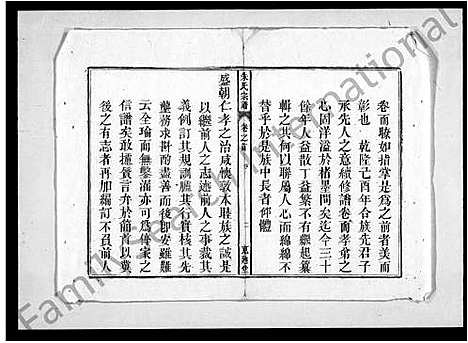 卷而驗如指掌是為之前者美而
彰也乾隆己酉年合族先君子
承先人之意續修譜卷而孝弟之
心固洋溢於楮墨間矣迄今三十
餘年人益散丁益繁不有繼起纂
輯之其何以聯屬人心而綿綿不
替乎於是族中長者仰體
朱氏宗譜
卷之首
盛朝仁孝之治咸懷敦本睦族之誠是
以繼前人之志述前人之事裁其
義例訂其規訓臚其行實核其先
塋務求斟酌盡善而後即安雖難
云全瑜而無纇濡亦可為傳家之
信譜矣敢攄聲言弁於簡首以冀
後之有志者再加編訂不召前人
Family Search International